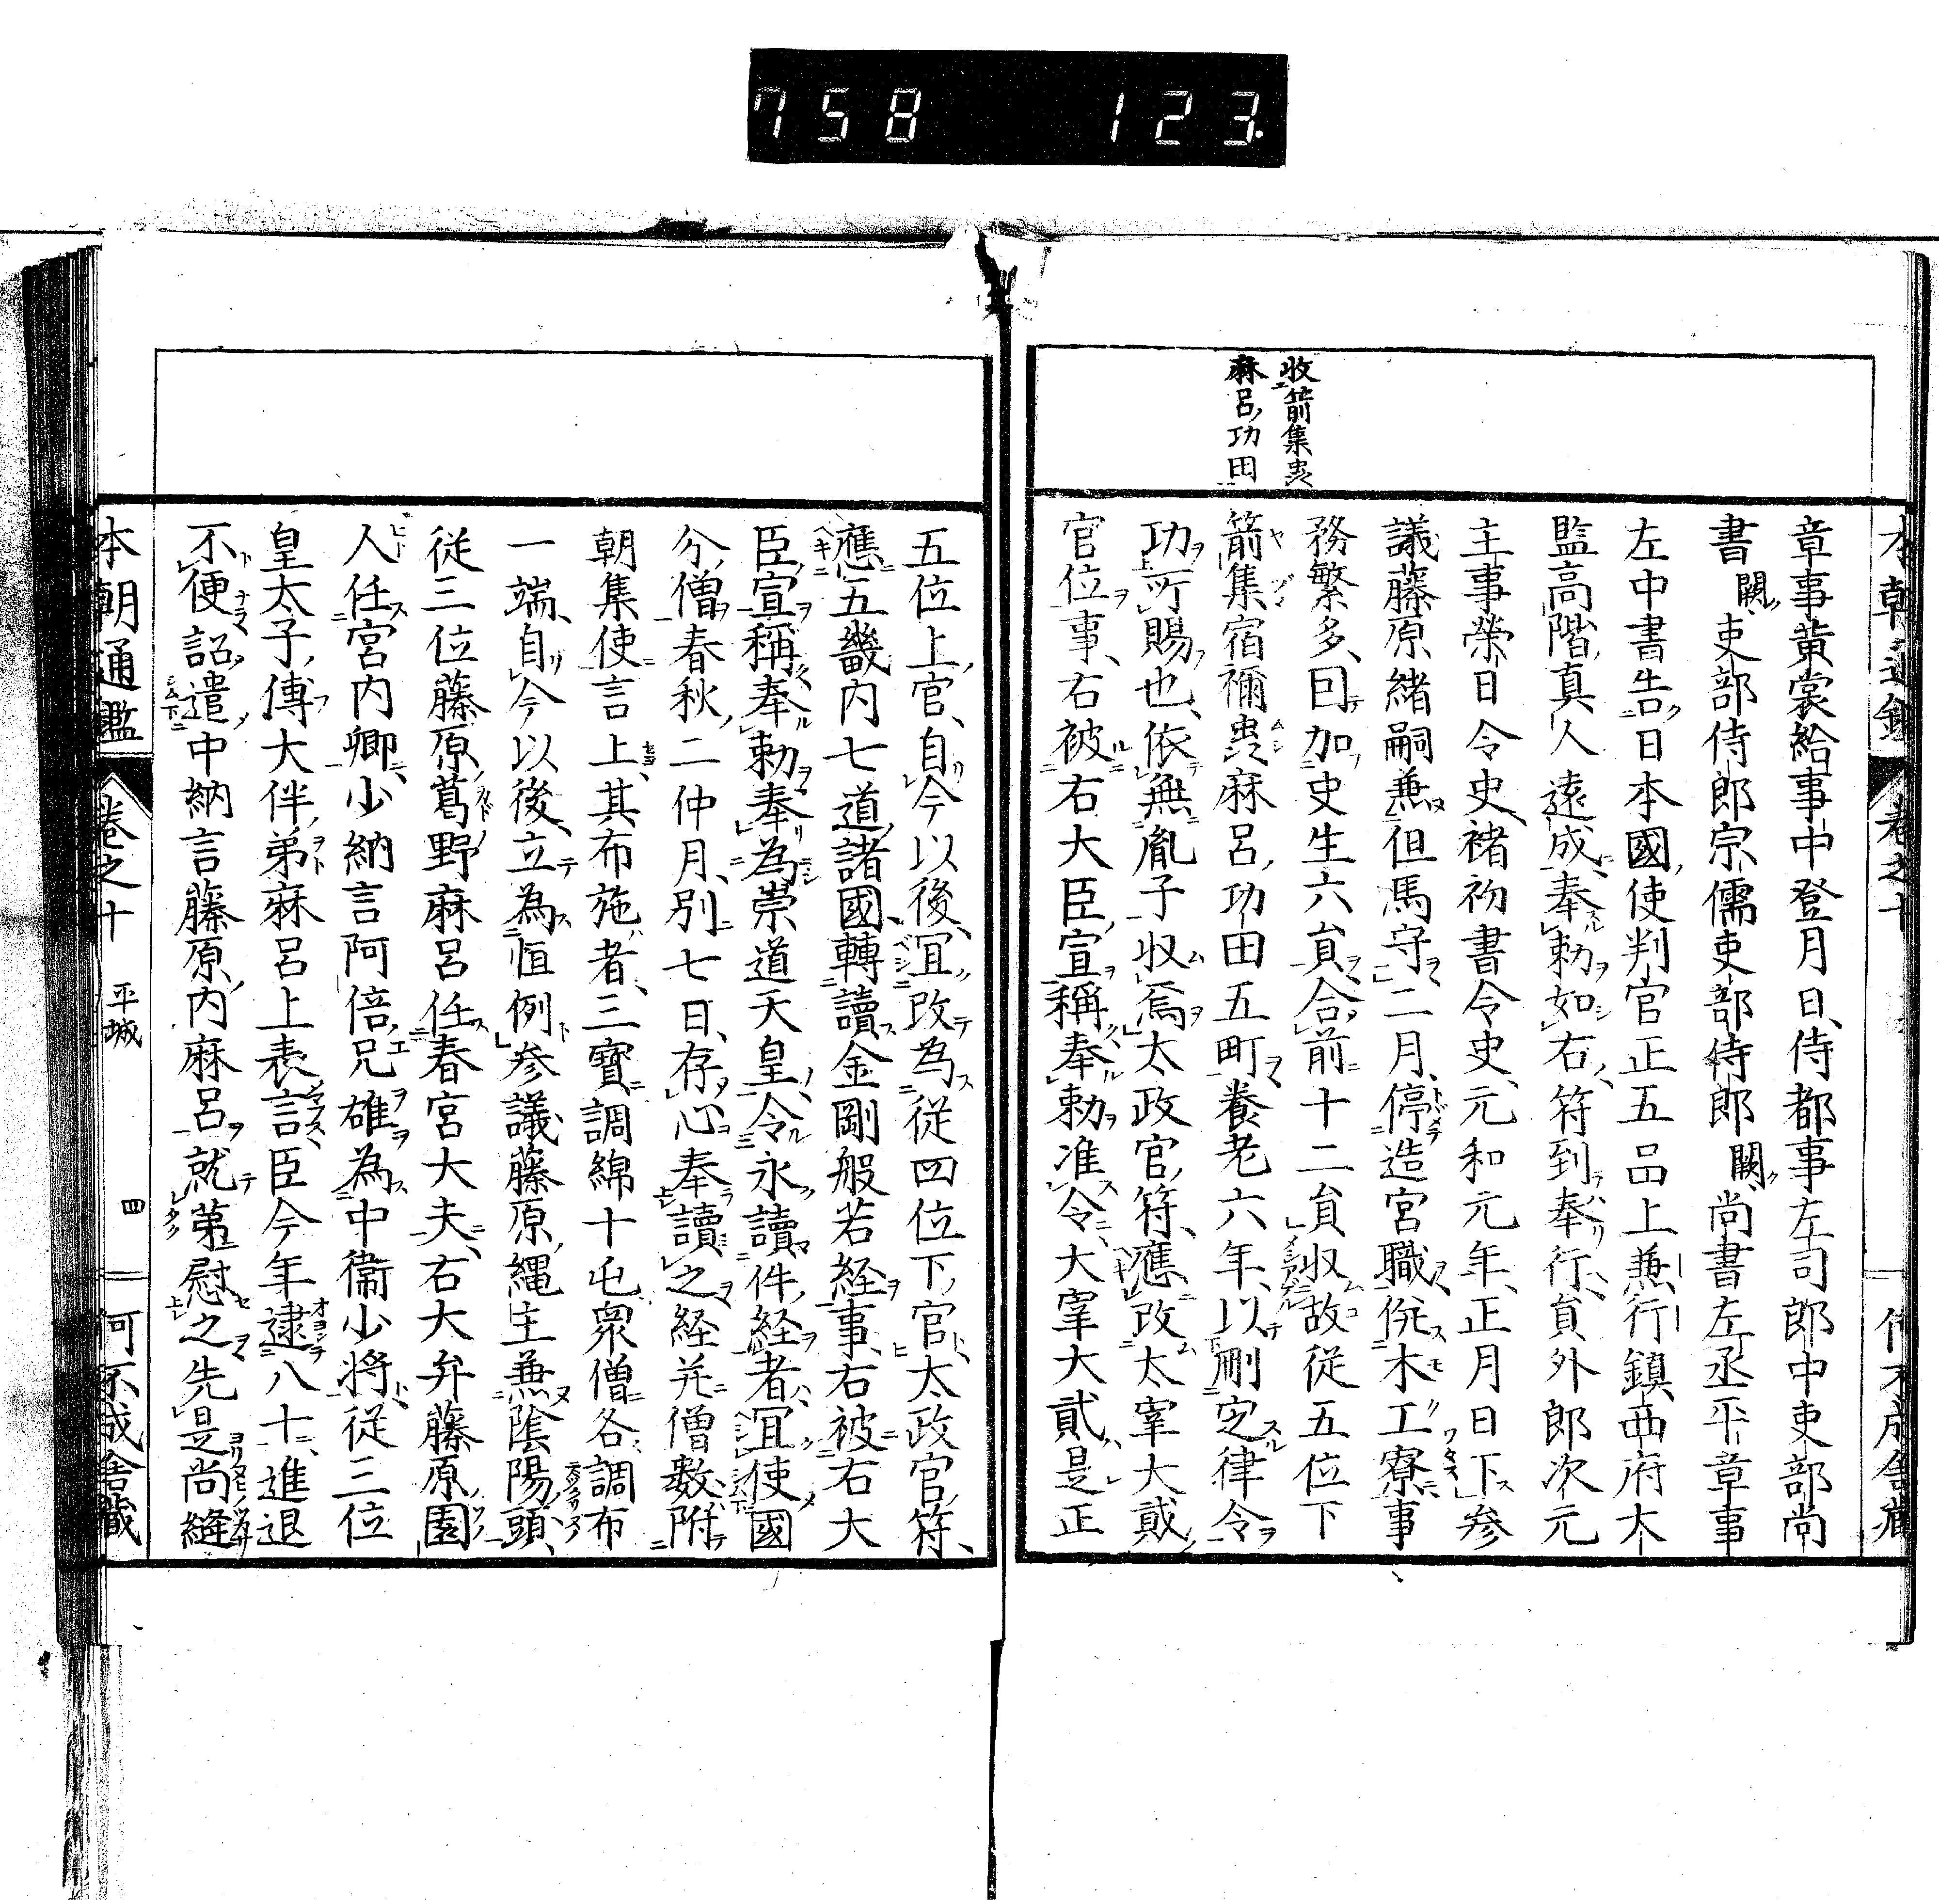 758 123
本朝通鑑 卷之十
收箭集虫
麻呂功田
章事黄裳給事中登月日侍都事左司郎中吏部尚
書闕吏部侍郎宗儒吏部侍郎闕尚書左丞平章事
左中書告日本國使判官正五品上兼行鎮西府大
監高階真人遠成奉勅如右符到奉行員外郎次元
主事榮日令史褚初書令史元和元年正月日下参
議藤原緒嗣兼但馬守二月停造宮職併木工寮事
務繁多因加史生六員合前十二員收故從五位下
箭集宿禰虫麻呂功田五町養老六年以刪定律令
功所賜也依無胤子收焉太政官符應改太宰大貮
官位事右被右大臣宣稱奉勅准令大宰大貳是正
五位上官自今以後宜改為從四位下官太政官符
應五畿內七道諸國轉讀金剛般若経事右被右大
臣宣稱奉勅奉為崇道天皇令永讀件経者宜使國
分僧春秋二仲月別七日存心奉讀之経并僧數附
朝集使言上其布施者三寶調綿十屯衆僧各調布
一端自今以後立為恒例参議藤原縄主兼陰陽頭
從三位藤原葛野麻呂任春宮大夫右大弁藤原園
人任宮內卿少納言阿倍兄雄為中衞少將從三位
皇太子傅大伴弟麻呂上表言臣今年逮八十進退
不便詔遣中納言藤原內麻呂就第慰之先是尚縫
本朝通鑑 卷之十 平城 四 何不成舍藏